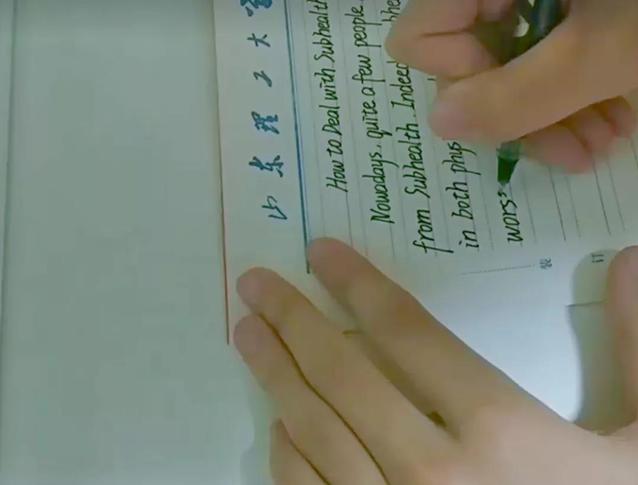 山东理工大
How to Deal with Subhealth
Nowadays, quite a few people
from Subhealth. Indeed
in both phys
wors
装
订